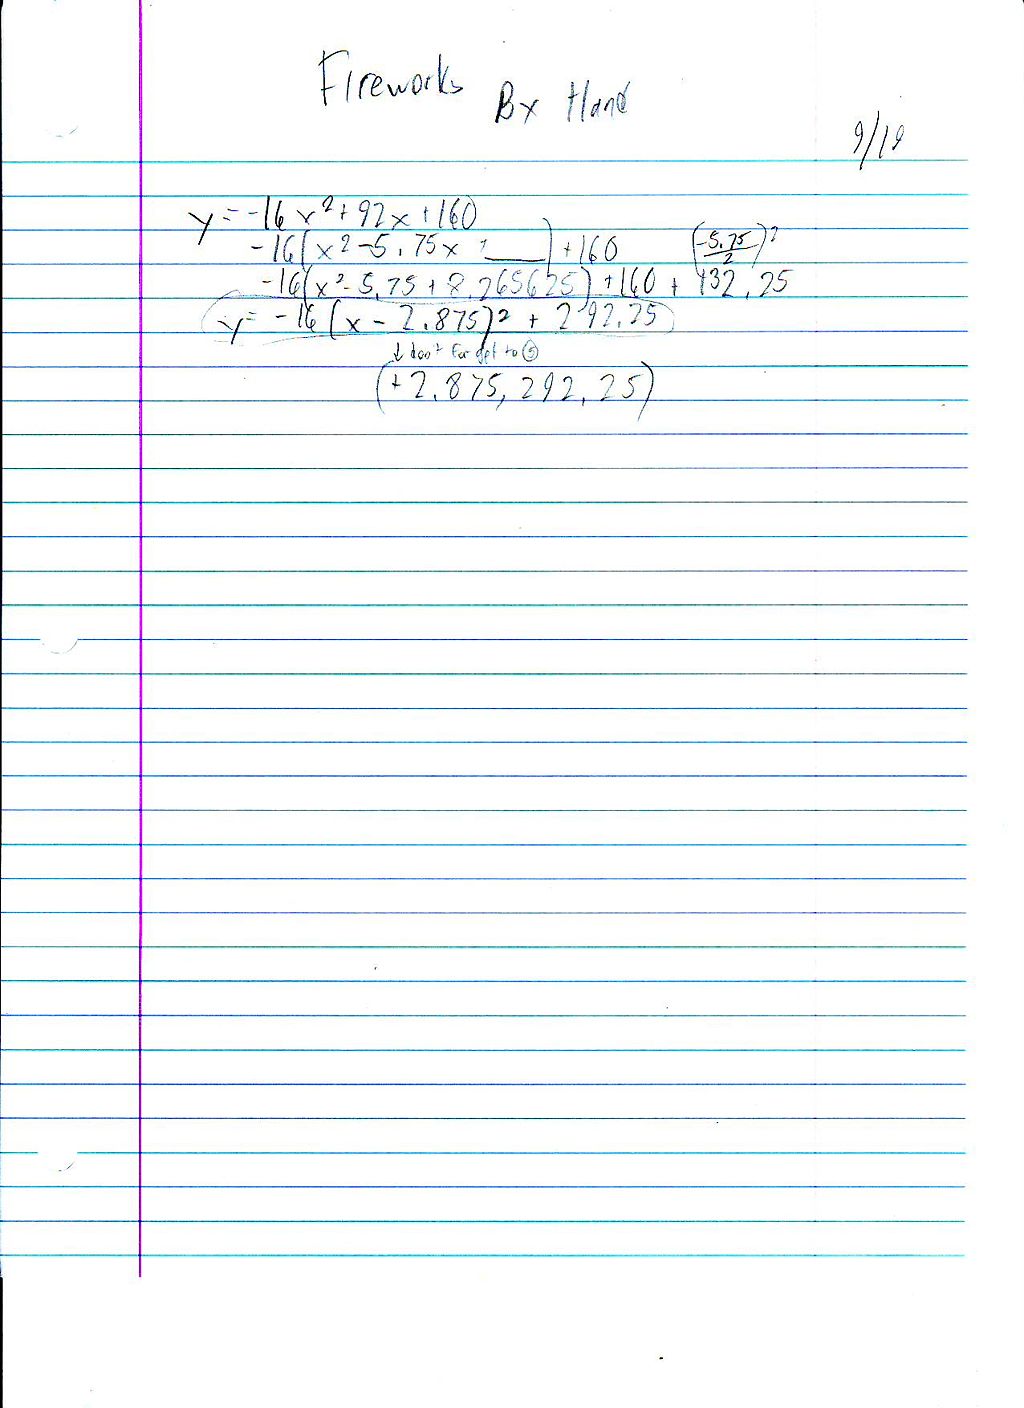 Fireworks By Hand
9/19
y = -16x² + 92x + 160
-16(x² - 5.75x + ___) + 160 (-5.75/2)²
-16(x² - 5.75 + 8.265625) + 160 + 132.25
y = -16(x - 2.875)² + 292.25
↓ don't forget to
(+2.875, 292.25)